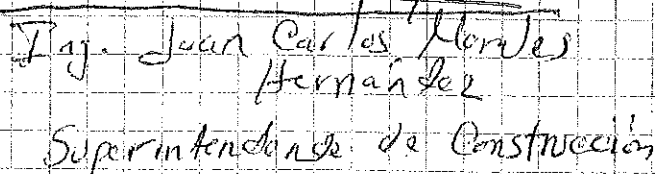 Ing. Juan Carlos Morales
Hernández
Superintendente de Construcción